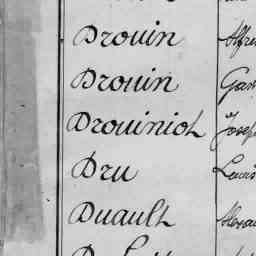 Drouin Alfre
Drouin Gas
Drouiniot Josep
Dru Louis
Duault Alexa